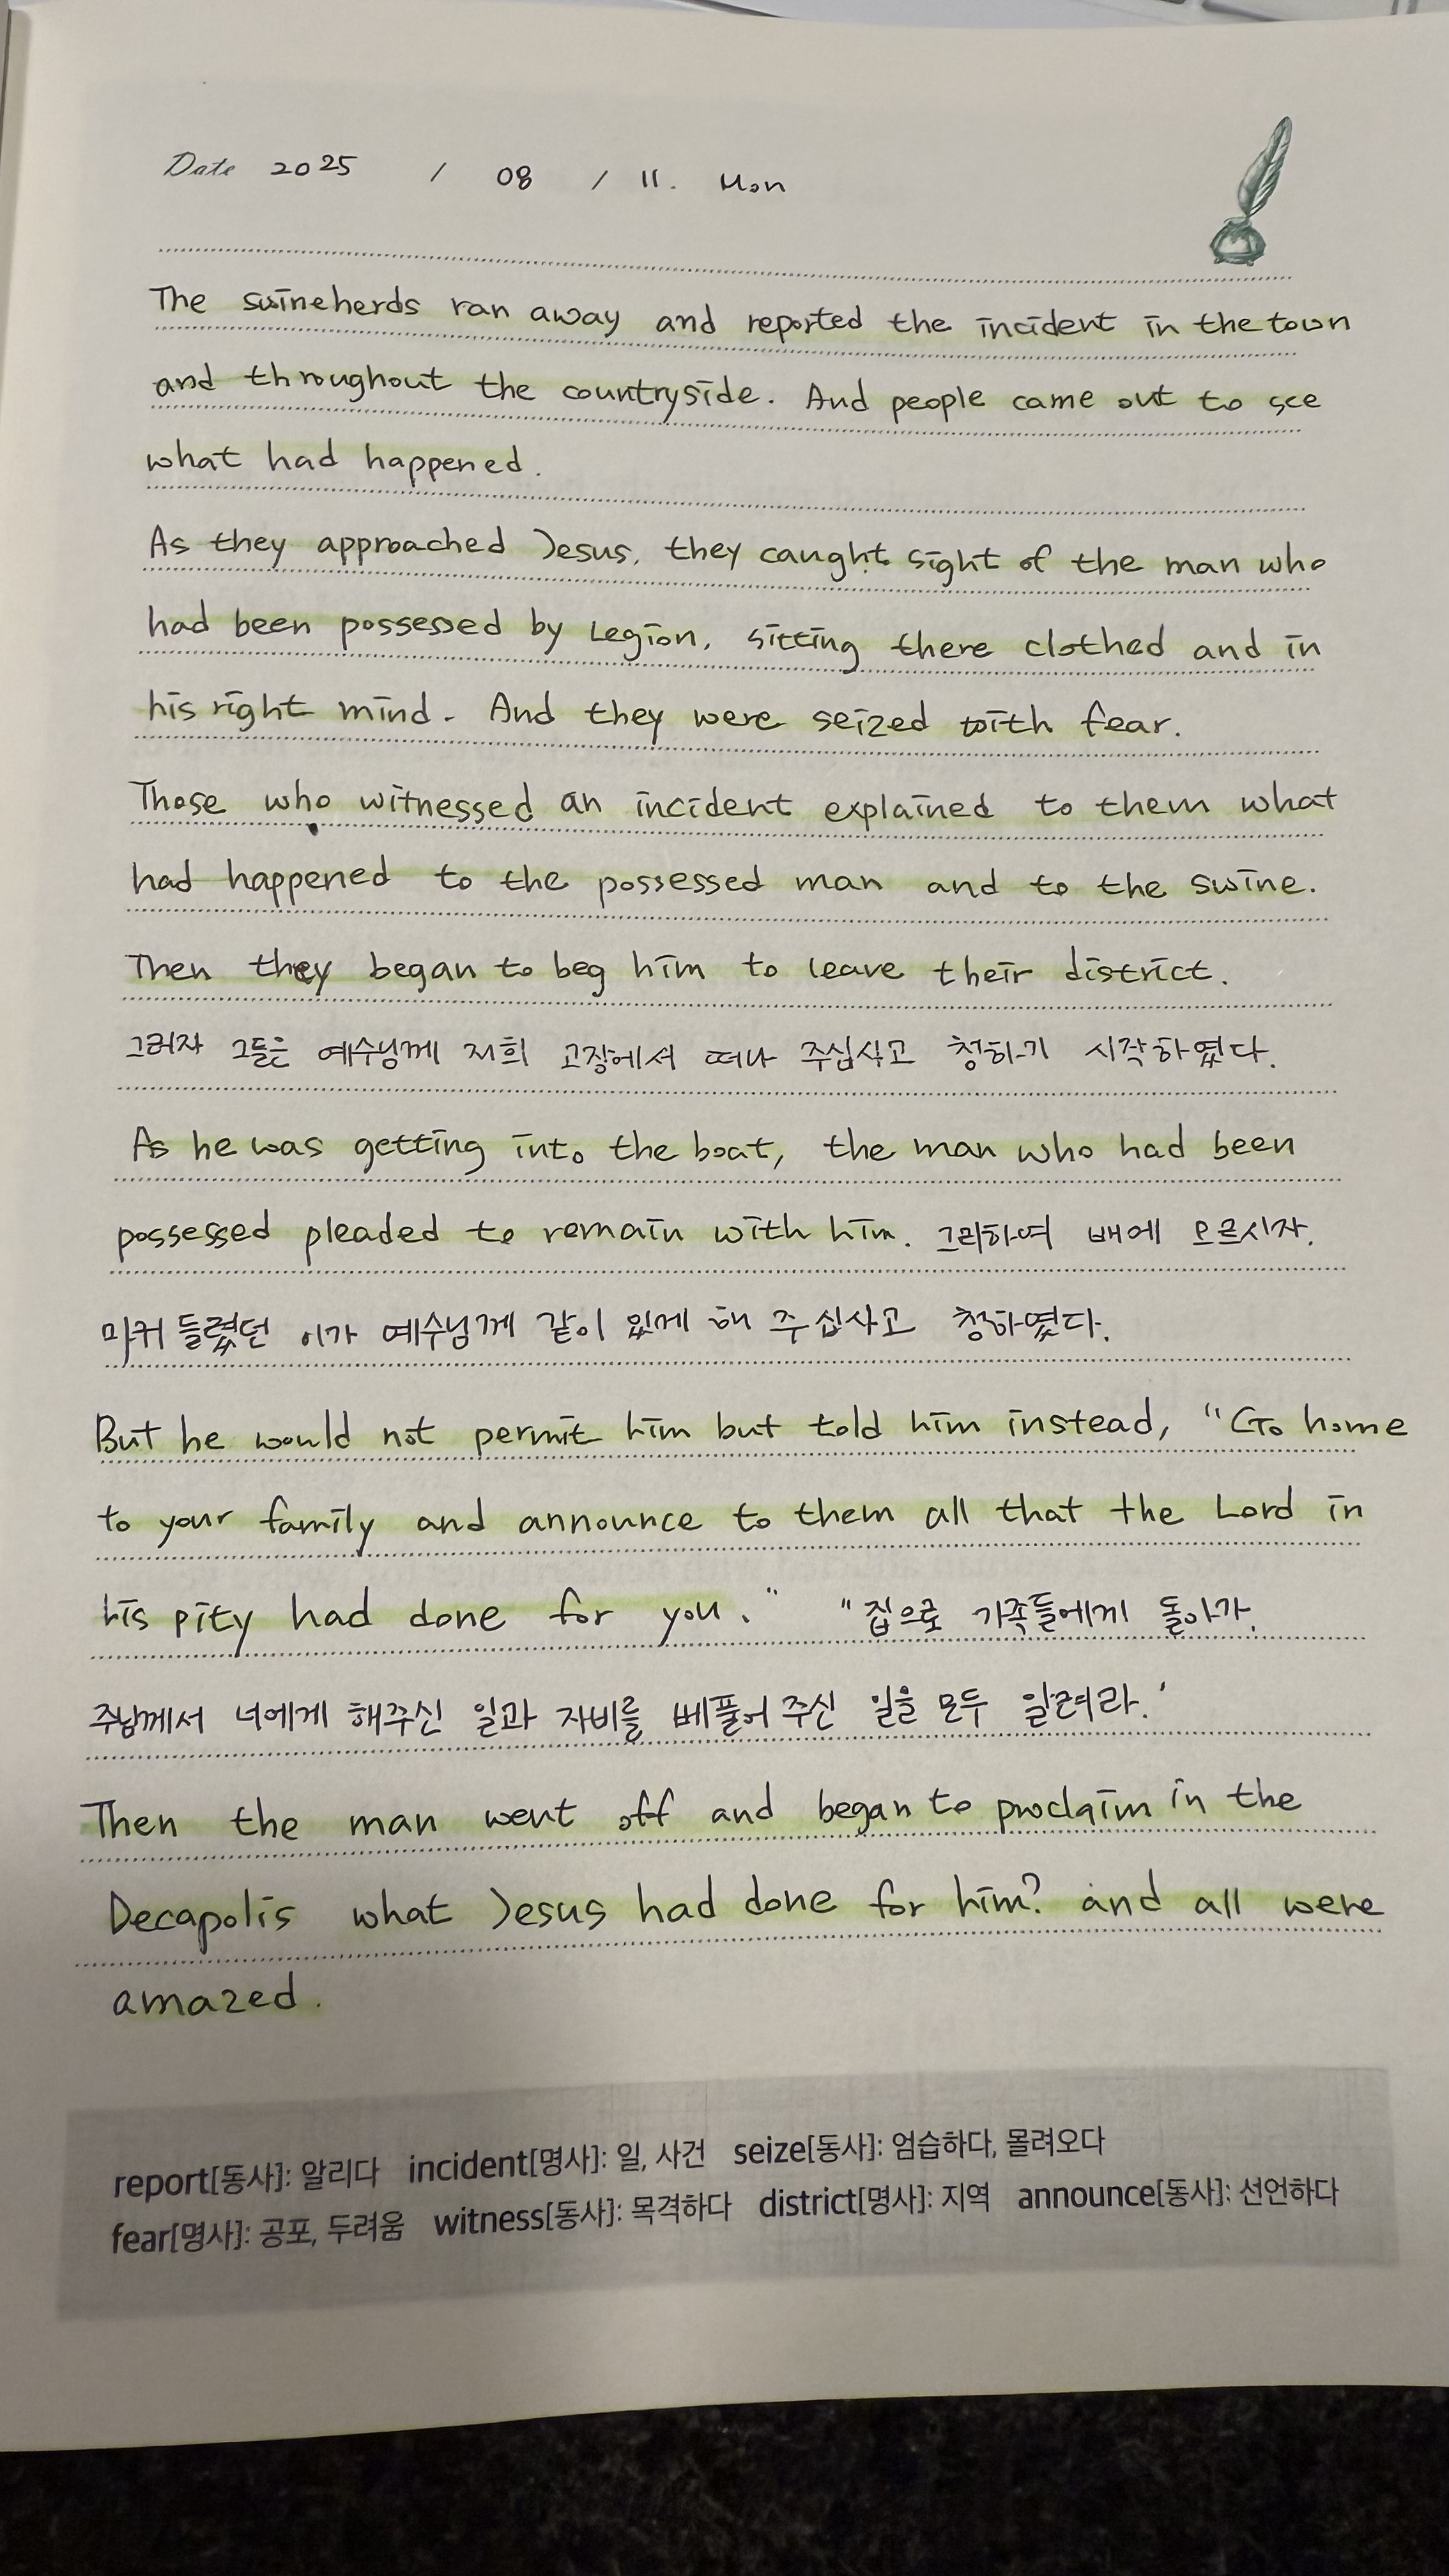 Date 2025 / 08 / 11. Mon
The swineherds ran away and reported the incident in the town
and throughout the countryside. And people came out to see
what had happened.
As they approached Jesus, they caught sight of the man who
had been possessed by Legion, sitting there clothed and in
his right mind. And they were seized with fear.
Those who witnessed an incident explained to them what
had happened to the possessed man and to the swine.
Then they began to beg him to leave their district.
그러자 그들은 예수님께 저희 고장에서 떠나 주십사고 청하기 시작하였다.
As he was getting into the boat, the man who had been
possessed pleaded to remain with him. 그리하여 배에 오르시자.
마귀 들렸던 이가 예수님께 같이 있게 해 주십사고 청하였다.
But he would not permit him but told him instead, "Go home
to your family and announce to them all that the Lord in
his pity had done for you." "집으로 가족들에게 돌아가.
주님께서 너에게 해주신 일과 자비를 베풀어 주신 일을 모두 알려라.'
Then the man went off and began to proclaim in the
Decapolis what Jesus had done for him? and all were
amazed.
report[동사]: 알리다 incident[명사]: 일, 사건 seize[동사]: 엄습하다, 몰려오다
fear[명사]: 공포, 두려움 witness[동사]: 목격하다 district[명사]: 지역 announce[동사]: 선언하다